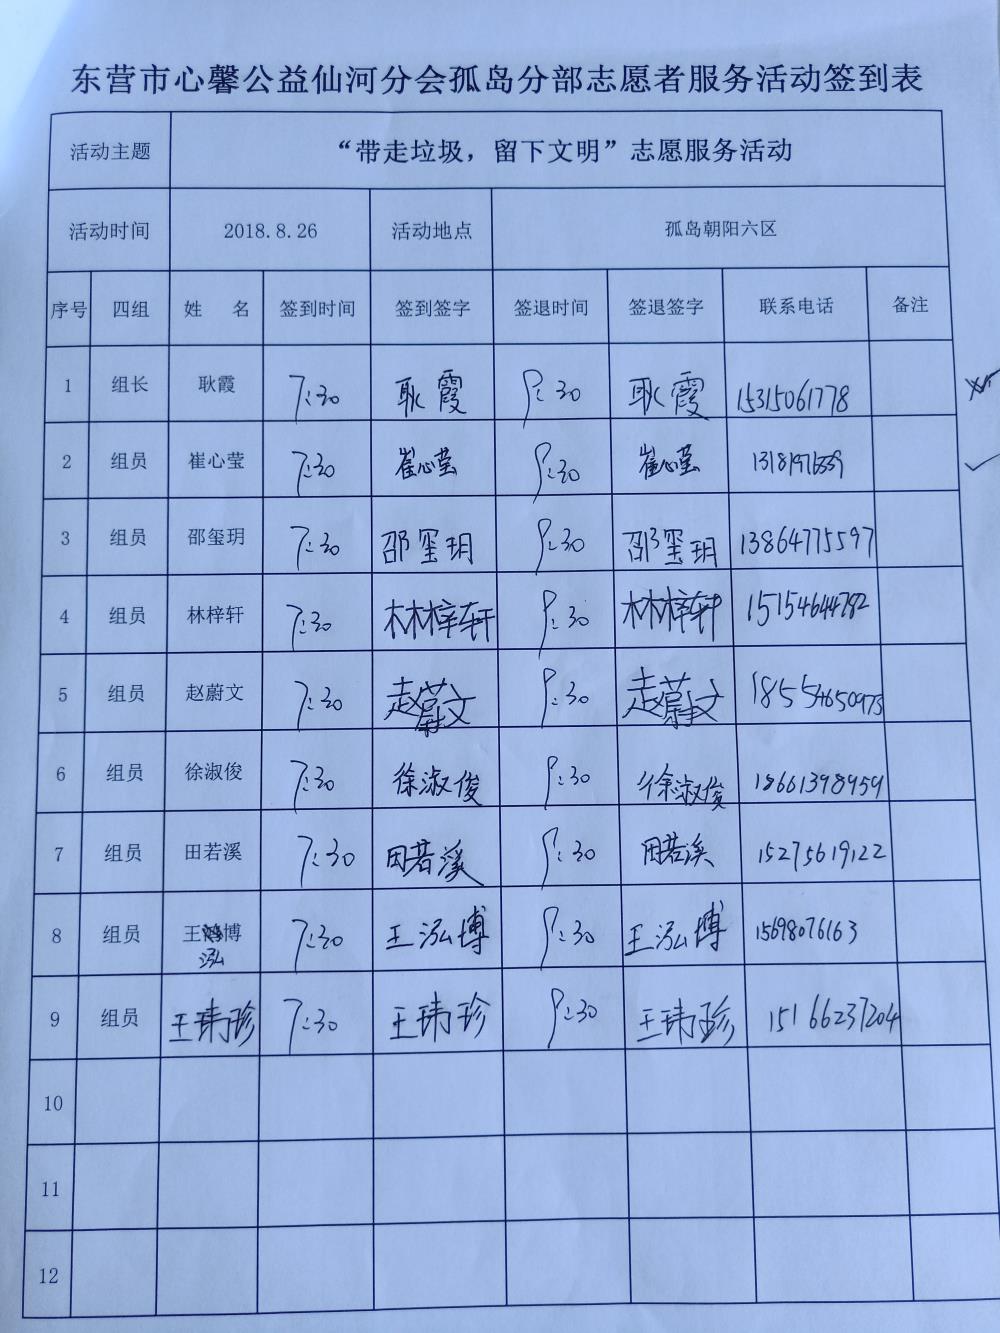 东营市心馨公益仙河分会孤岛分部志愿者服务活动签到表
活动主题 “带走垃圾，留下文明”志愿服务活动
活动时间 2018.8.26 活动地点 孤岛朝阳六区
序号 四组 姓 名 签到时间 签到签字 签退时间 签退签字 联系电话 备注
1 组长 耿霞 7:30 耿霞 9:30 耿霞 15315061778
2 组员 崔心莹 7:30 崔心莹 9:30 崔心莹
3 组员 邵玺玥 7:30 邵玺玥 9:30 邵玺玥 13864775597
4 组员 林梓轩 7:30 林梓轩 9:30 林梓轩 15154644782
5 组员 赵蔚文 7:30 赵蔚文 9:30 赵蔚文 18554650973
6 组员 徐淑俊 7:30 徐淑俊 9:30 徐淑俊 18661398959
7 组员 田若溪 7:30 田若溪 9:30 田若溪 15275619122
8 组员 王博 7:30 王泓博 9:30 王泓博 15698076163
泓
9 组员 王玮珍 7:30 王玮珍 9:30 王玮珍 15166237204
10
11
12